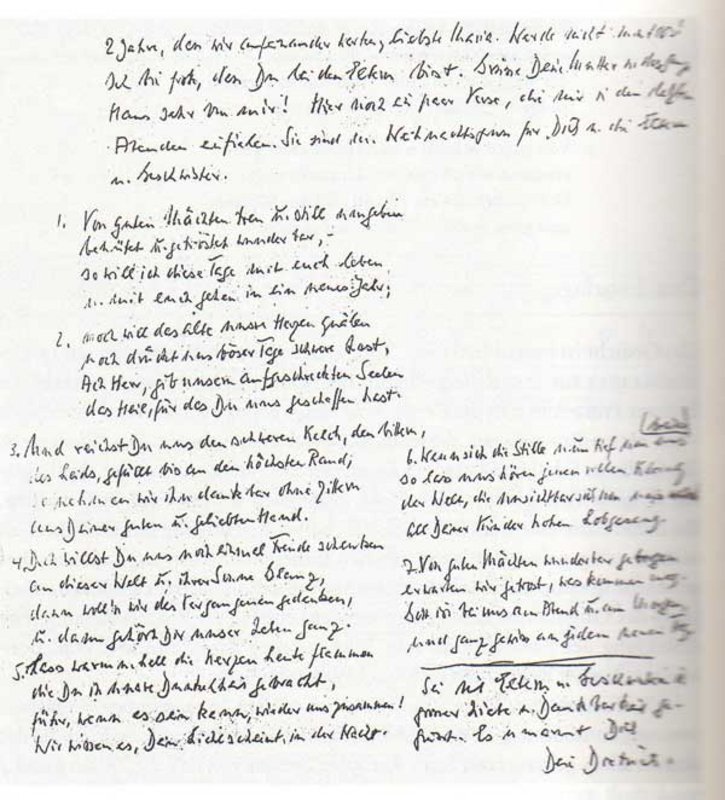 2 Jahre, dass wir aufeinander warten, liebste Maria. Werde nicht mutlos!
Ich bin froh, dass Du bei den Eltern bist. Grüsse Deine Mutter u. das ganze
Haus sehr von mir! Hier noch ein paar Verse, die mir in den letzten
Abenden einfielen. Sie sind der Weihnachtsgruss für Dich u. die Eltern
u. Geschwister.
1. Von guten Mächten treu u. still umgeben
behütet u. getröstet wunderbar, –
so will ich diese Tage mit euch leben
u. mit euch gehen in ein neues Jahr;
2. noch will das alte unsre Herzen quälen
noch drückt uns böser Tage schwere Last,
Ach Herr, gib unsern aufgescheuchten Seelen
das Heil, für das Du uns geschaffen hast.
3. Und reichst Du uns den schweren Kelch, den bittern,
des Leids, gefüllt bis an den höchsten Rand,
so nehmen wir ihn dankbar ohne Zittern
aus Deiner guten u. geliebten Hand.
4. Doch willst Du uns noch einmal Freude schenken
an dieser Welt u. ihrer Sonne Glanz,
dann woll'n wir des Vergangenen gedenken,
u. dann gehört Dir unser Leben ganz.
5. Lass warm u. hell die Kerzen heute flammen
die Du in unsre Dunkelheit gebracht,
führ, wenn es sein kann, wieder uns zusammen!
Wir wissen es, Dein Licht scheint in der Nacht.
6. Wenn sich die Stille nun tief um uns
so lass uns hören jenen vollen Klang
der Welt, die unsichtbar sich um uns
all Deiner Kinder hohen Lobgesang.
7. Von guten Mächten wunderbar geborgen
erwarten wir getrost, was kommen mag.
Gott ist bei uns am Abend u. am Morgen
und ganz gewiss an jedem neuen Tag.
Sei mit Eltern u. Geschwistern in
grosser Liebe u. Dankbarkeit ge-
grüsst. Es umarmt Dich
Dein Dietrich